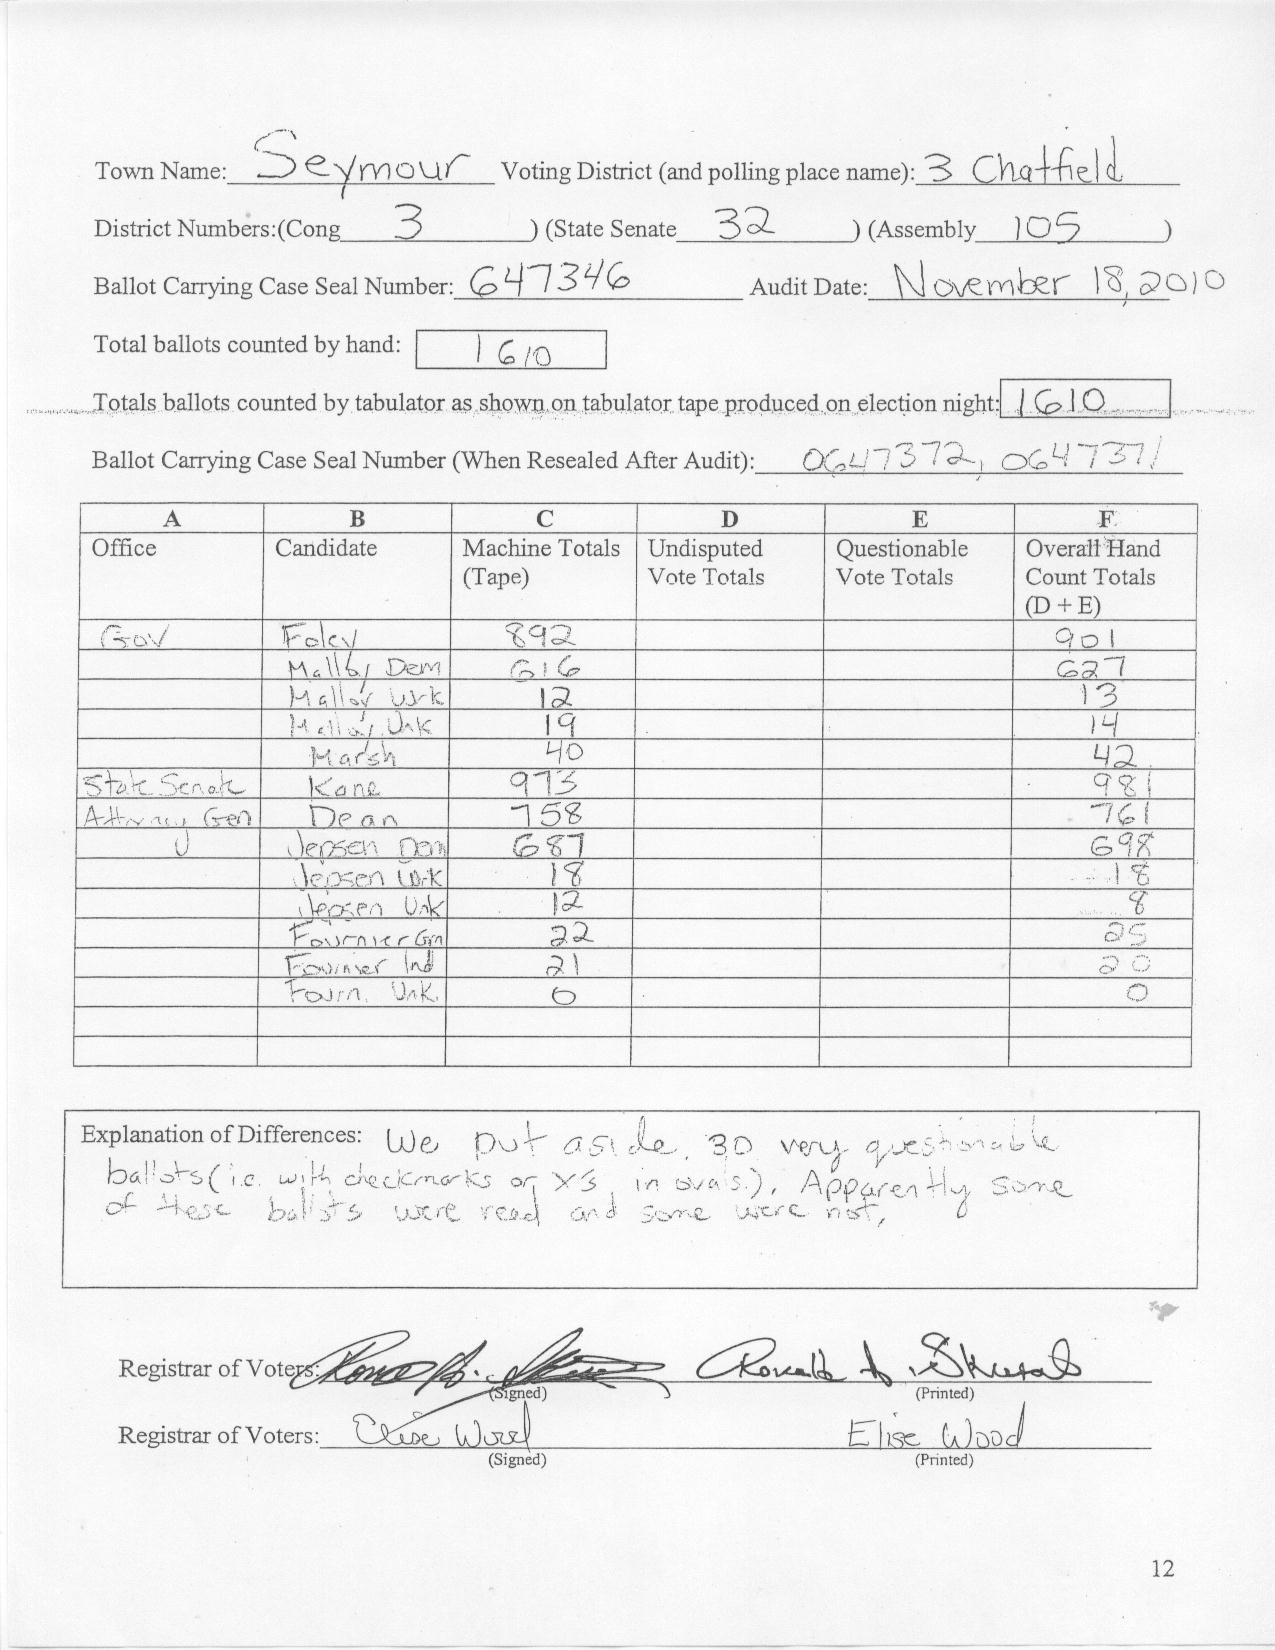 Town Name: Seymour Voting District (and polling place name): 3 Chatfield
District Numbers:(Cong 3 ) (State Senate 32 ) (Assembly 105 )
Ballot Carrying Case Seal Number: 647346 Audit Date: November 18, 2010
Total ballots counted by hand: 1610
Totals ballots counted by tabulator as shown on tabulator tape produced on election night: 1610
Ballot Carrying Case Seal Number (When Resealed After Audit): 0647372, 0647371
A B C D E F
Office Candidate Machine Totals (Tape) Undisputed Vote Totals Questionable Vote Totals Overall Hand Count Totals (D + E)
Gov Foley 892 901
Malloy Dem 616 627
Malloy Wrk 12 13
Malloy Unk 19 14
Marsh 40 42
State Senate Kane 973 981
Attorney Gen Dean 758 761
Jepsen Dem 687 698
Jepsen Wrk 18 18
Jepsen Unk 12 8
Fournier Grn 22 25
Fournier Ind 21 20
Fourn. Unk. 0 0
Explanation of Differences: We put aside 30 very questionable
ballots (i.e. with checkmarks or X's in ovals.). Apparently some
of these ballots were read and some were not,
Registrar of Voters:
(Signed) (Printed)
Registrar of Voters: Elise Wood Elise Wood
(Signed) (Printed)
12